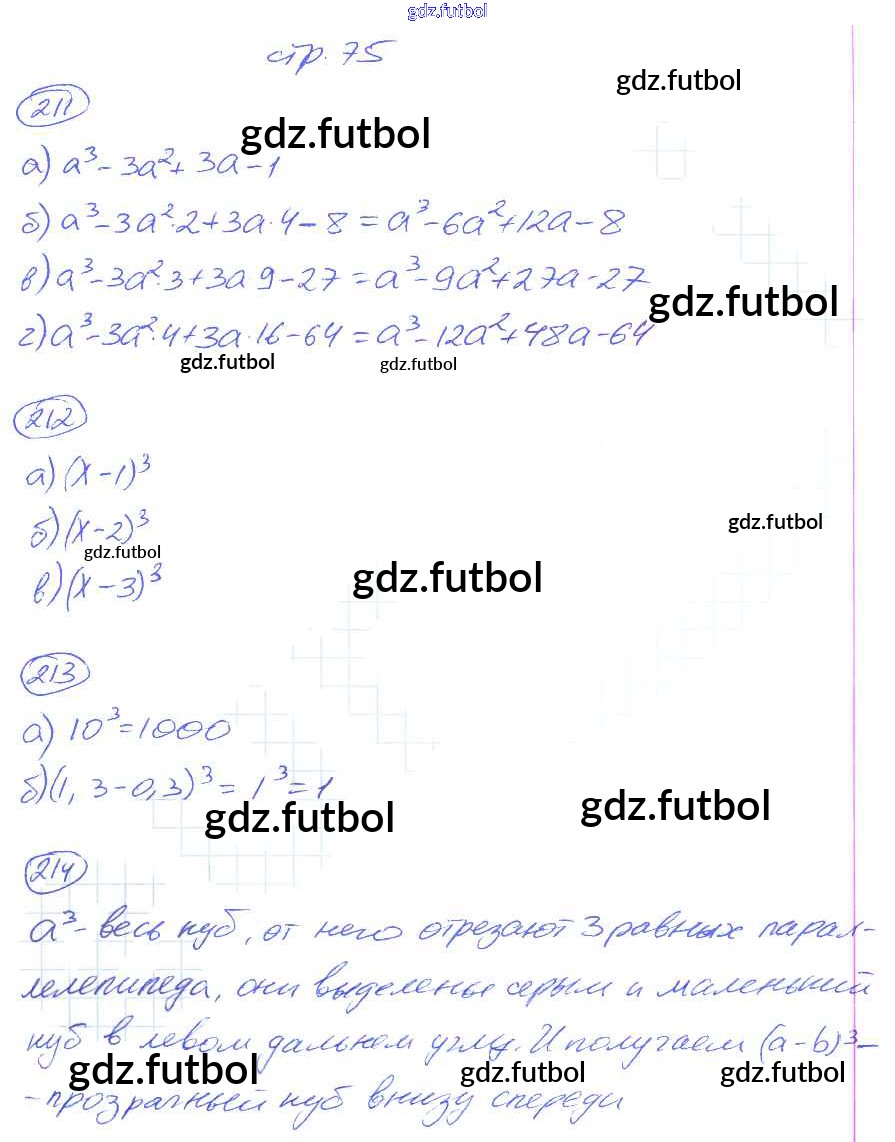 gdz.futbol
стр. 75
gdz.futbol
211
gdz.futbol
а) a³ - 3a² + 3a - 1
б) a³ - 3a²·2 + 3a·4 - 8 = a³ - 6a² + 12a - 8
в) a³ - 3a²·3 + 3a 9 - 27 = a³ - 9a² + 27a - 27
gdz.futbol
г) a³ - 3a²·4 + 3a·16 - 64 = a³ - 12a² + 48a - 64
gdz.futbol gdz.futbol
212
а) (x - 1)³
б) (x - 2)³
gdz.futbol
gdz.futbol
в) (x - 3)³
gdz.futbol
213
а) 10³ = 1000
б) (1,3 - 0,3)³ = 1³ = 1
gdz.futbol gdz.futbol
214
a³ - весь куб, от него отрезают 3 равных парал-
лелепипеда, они выделены серым и маленький
куб в левом дальнем углу. И получаем (a - b)³ -
gdz.futbol gdz.futbol gdz.futbol
- прозрачный куб внизу спереди